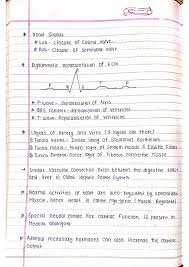 Heart Sounds
Lub - Closure of Cuspid valve
Dub - Closure of semilunar valve
Diagrammatic representation of ECG
P-wave - depolarisation of Atria
QRS complex - depolarisation of ventricles
T-wave - Repolarisation of ventricles
Layers of Artery and veins (3 layers are there)
Tunica Intima - Inner lining of Squamous epithelium
Tunica media - Middle layer of smooth muscle & Elastic fibres
Tunica Externa - Outer layer of fibrous connective tissue
Unique Vascular connection exist between the digestive tract
and liver is called Hepatic Portal System
Normal activities of heart are auto regulated by specialised
Muscle, hence heart is called Myogenic (Muscle Regulated)
Special neural centre for cardiac function is present in
Medulla oblongata
Adrenal medullary hormones can also increase the cardiac
output